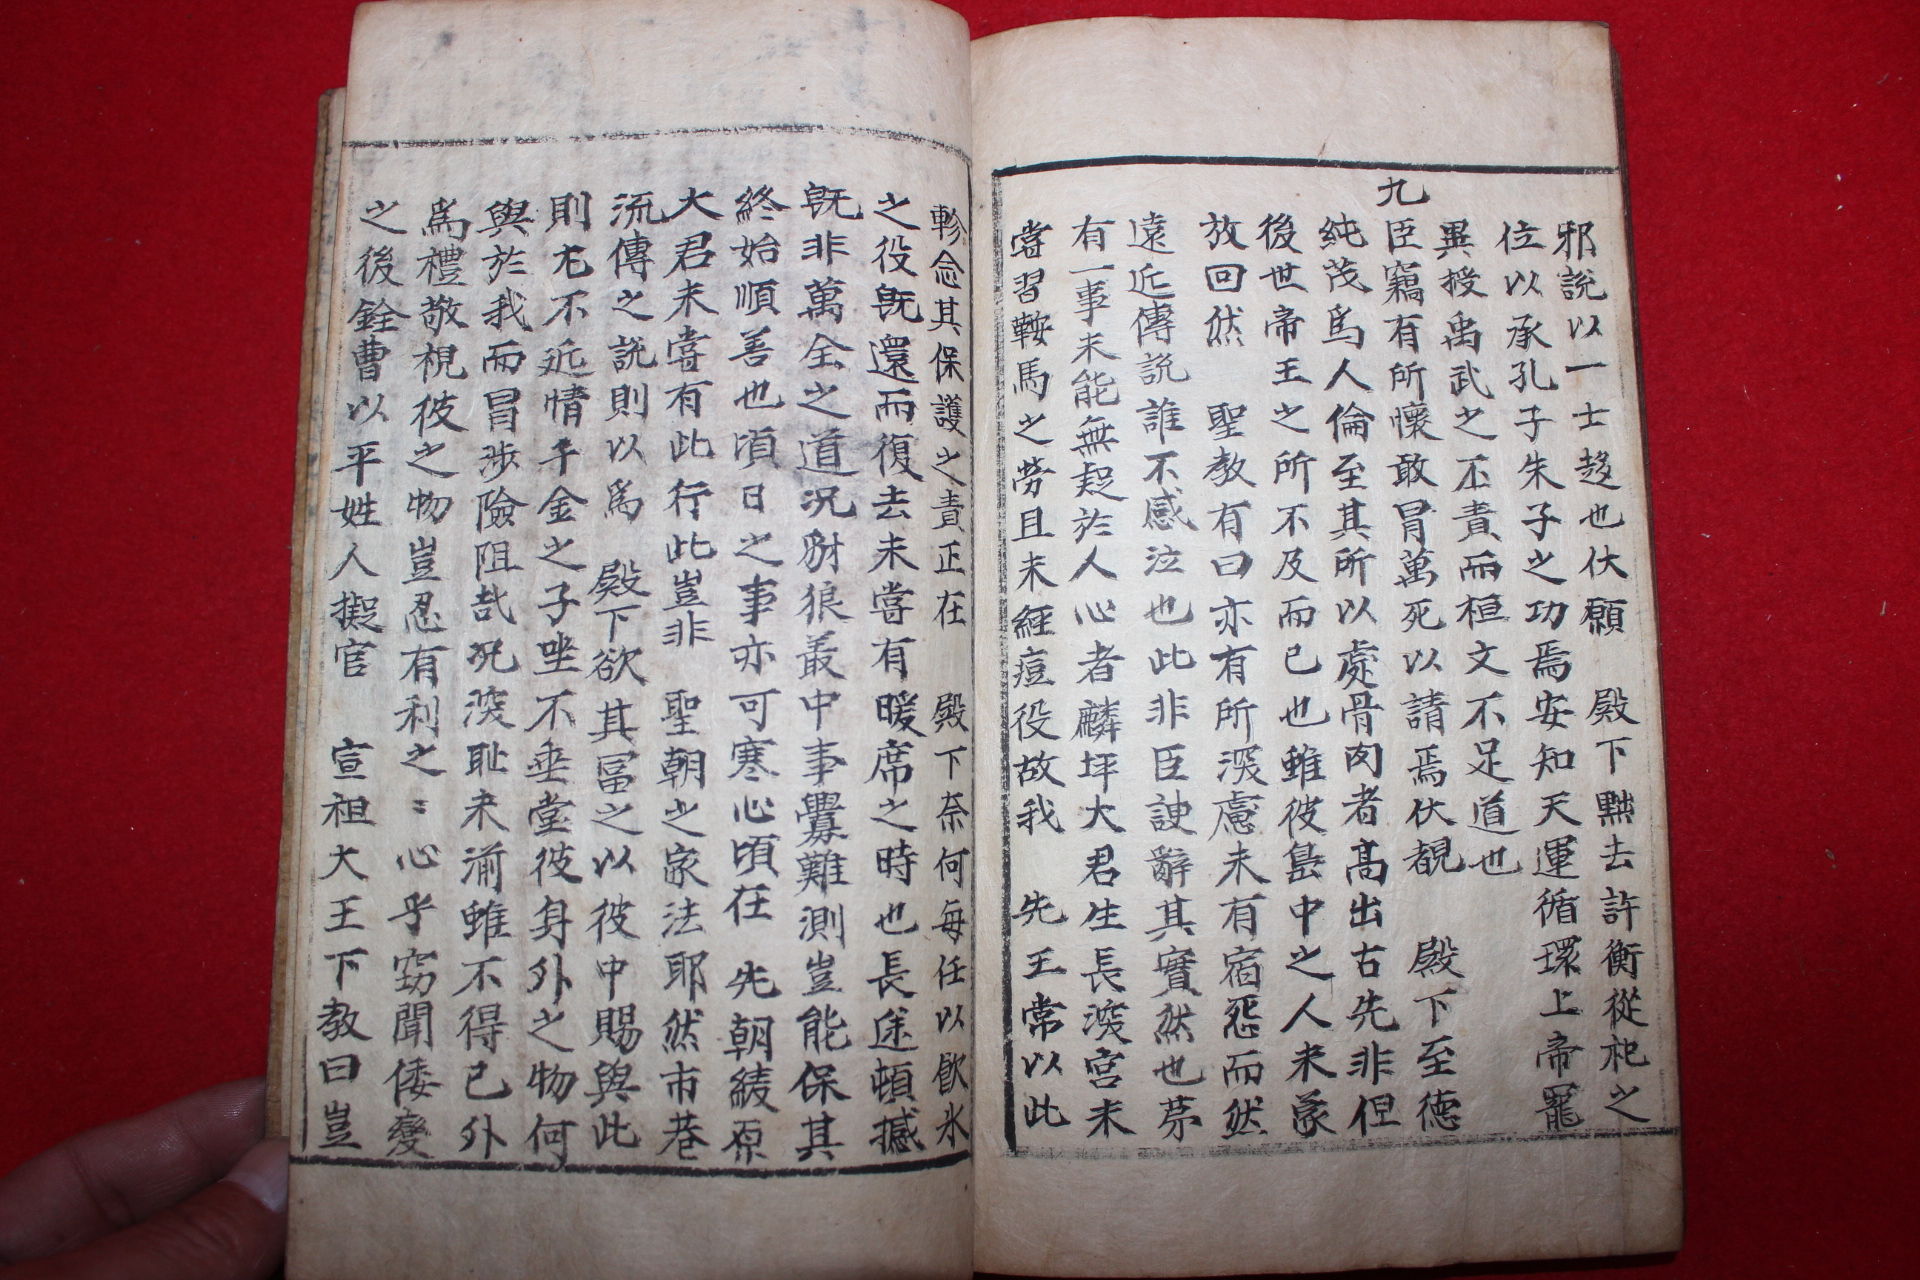 邪說以一士趍也伏願 殿下黜去許衡從祀之
位以承孔子朱子之功焉安知天運循環上帝寵
異授禹武之丕責而桓文不足道也
九
臣竊有所懷敢冒萬死以請焉伏覩 殿下至德
純茂爲人倫至其所以處骨肉者高出古先非但
後世帝王之所不及而已也雖彼島中之人未蒙
放回然 聖教有曰亦有所深慮未有宿怨而然
遠近傳說誰不感泣也此非臣諛辭其實然也苐
有一事未能無疑於人心者麟坪大君生長深宮未
嘗習鞍馬之勞且未經痘役故我 先王常以此
軫念其保護之責正在 殿下奈何每任以飮氷
之役旣還而復去未嘗有暖席之時也長途頓撼
旣非萬全之道况豺狼叢中事釁難測豈能保其
終始順善也頃日之事亦可寒心頃在 先朝綾原
大君未嘗有此行此豈非 聖朝之家法耶然市巷
流傳之說則以爲 殿下欲其冨之以彼中賜與此
則尤不近情千金之子坐不垂堂彼身外之物何
與於我而冒涉險阻哉况深恥未湔雖不得已外
爲禮敬視彼之物豈忍有利之〻心乎窃聞倭變
之後銓曹以平姓人擬官 宣祖大王下教曰豈